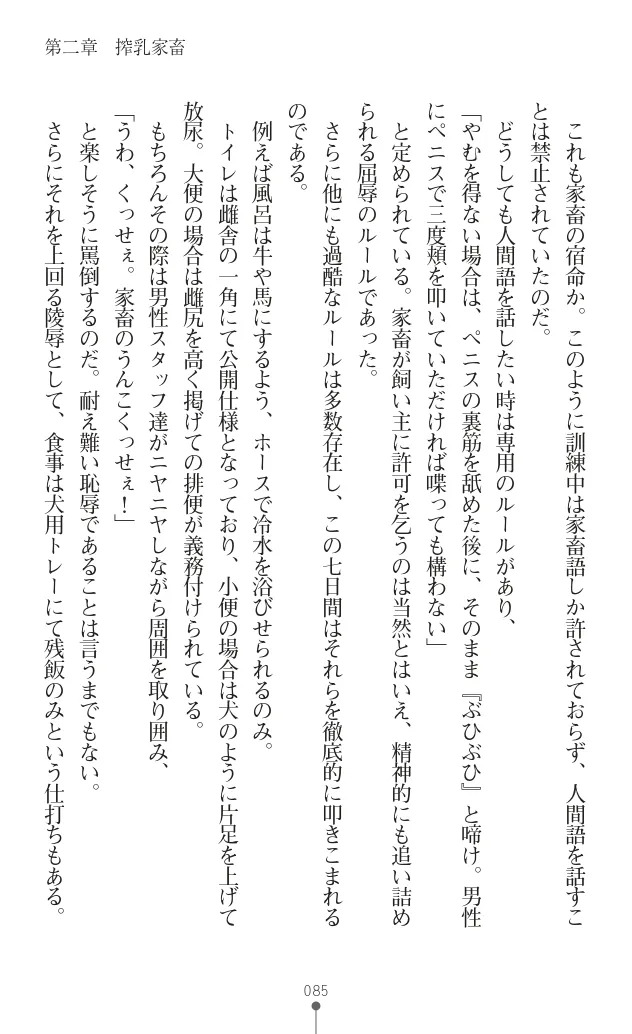 第二章　搾乳家畜
　これも家畜の宿命か。このように訓練中は家畜語しか許されておらず、人間語を話すこ
とは禁止されていたのだ。
　どうしても人間語を話したい時は専用のルールがあり、
「やむを得ない場合は、ペニスの裏筋を舐めた後に、そのまま『ぶひぶひ』と啼け。男性
にペニスで三度頬を叩いていただければ喋っても構わない」
　と定められている。家畜が飼い主に許可を乞うのは当然とはいえ、精神的にも追い詰め
られる屈辱のルールであった。
　さらに他にも過酷なルールは多数存在し、この七日間はそれらを徹底的に叩きこまれる
のである。
　例えば風呂は牛や馬にするよう、ホースで冷水を浴びせられるのみ。
　トイレは雌舎の一角にて公開仕様となっており、小便の場合は犬のように片足を上げて
放尿。大便の場合は雌尻を高く掲げての排便が義務付けられている。
　もちろんその際は男性スタッフ達がニヤニヤしながら周囲を取り囲み、
「うわ、くっせぇ。家畜のうんこくっせぇ！」
　と楽しそうに罵倒するのだ。耐え難い恥辱であることは言うまでもない。
　さらにそれを上回る陵辱として、食事は犬用トレーにて残飯のみという仕打ちもある。
085